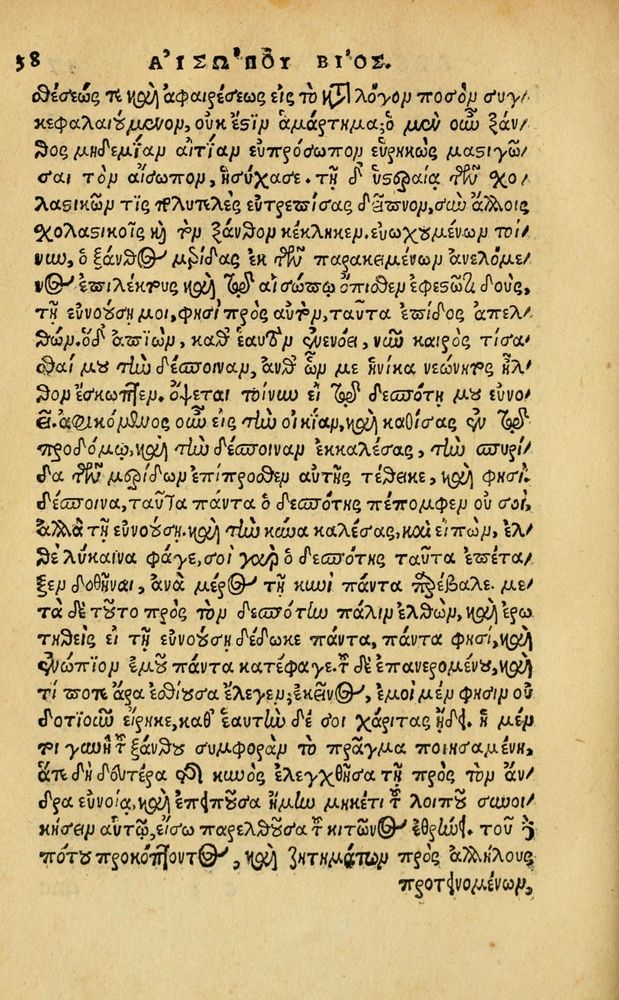 58 ΑΙΣΩΠΟΥ ΒΙΟΣ.
θέσεώς τε καὶ ἀφαιρέσεως εἰς τὸ κατὰ λόγον ποσὸν συγ-
κεφαλαιούμενον, οὐκ ἔστιν ἁμάρτημα; ὁ μὲν οὖν ξάν-
θος μηδεμίαν αἰτίαν εὐπρόσωπον εὑρηκὼς μαστιγῶ-
σαι τὸν αἴσωπον, ἡσύχασε. τῇ δ' ὑστεραίᾳ τῶν σχο-
λαστικῶν τὶς πολυτελὲς εὐτρεπίσας δεῖπνον, σὺν ἄλλοις
σχολαστικοῖς καὶ τὸν ξάνθον κέκληκεν. εὐωχουμένων τοί-
νυν, ὁ ξάνθος μερίδας ἐκ τῶν παρακειμένων ἀνελόμε-
νος ἐπιλέκτους καὶ τῷ αἰσώπῳ ὄπιθεν ἐφεστῶτι δοὺς,
τῇ εὐνούσῃ μοι, φησὶ πρὸς αὐτὸν, ταῦτα ἐπίδος ἀπελ-
θών. ὁ δ' ἀπιὼν, καθ' ἑαυτὸν ἐνενόει, νῦν καιρὸς τίσα-
σθαί μου τὴν δέσποιναν, ἀνθ' ὧν με ἡνίκα νεώνητος ἦλ-
θον ἔσκωπτεν. ὄψεται τοίνυν εἰ τῷ δεσπότῃ μου εὐνο-
εῖ. ἀφικόμενος οὖν εἰς τὴν οἰκίαν, καὶ καθίσας ἐν τῷ
προδόμῳ, καὶ τὴν δέσποιναν ἐκκαλέσας, τὴν σπυρί-
δα τῶν μερίδων ἐπίπροσθεν αὐτῆς τέθεικε, καὶ φησί.
δέσποινα, ταῦτα πάντα ὁ δεσπότης πέπομφεν οὐ σοὶ,
ἀλλὰ τῇ εὐνούσῃ. καὶ τὴν κύνα καλέσας, καὶ εἰπὼν, ἐλ-
θὲ λύκαινα φάγε, σοὶ γὰρ ὁ δεσπότης ταῦτα ἐπέτα-
ξεν δοθῆναι, ἀνὰ μέρος τῇ κυνὶ πάντα προέβαλε. με-
τὰ δὲ τοῦτο πρὸς τὸν δεσπότην πάλιν ἐλθὼν, καὶ ἐρω
τηθεὶς εἰ τῇ εὐνούσῃ δέδωκε πάντα, πάντα φησὶ, καὶ
ἐνώπιον ἐμοῦ πάντα κατέφαγε. τοῦ δὲ ἐπανερομένου, καὶ
τί ποτε ἄρα ἐσθίουσα ἔλεγεν; ἐκεῖνος, ἐμοὶ μέν φησιν οὐ
δοτιοῦν εἴρηκε, καθ' ἑαυτὴν δέ σοι χάριτας ᾔδει. ἡ μέν
τοι γυνὴ τοῦ ξάνθου συμφορὰν τὸ πρᾶγμα ποιησαμένη,
ἅτε δὴ δευτέρα τῆς κυνὸς ἐλεγχθῆσα τῇ πρὸς τὸν ἄν-
δρα εὐνοίᾳ, καὶ ἐπειποῦσα ἦμὴν μηκέτι τοῦ λοιποῦ συνοι-
κήσειν αὐτῷ, εἴσω παρελθοῦσα τοῦ κιτῶνος ἐθρήνει. τοῦ δὲ
πότου προκόπτοντος, καὶ ζητημάτων πρὸς ἀλλήλους
προτεινομένων,